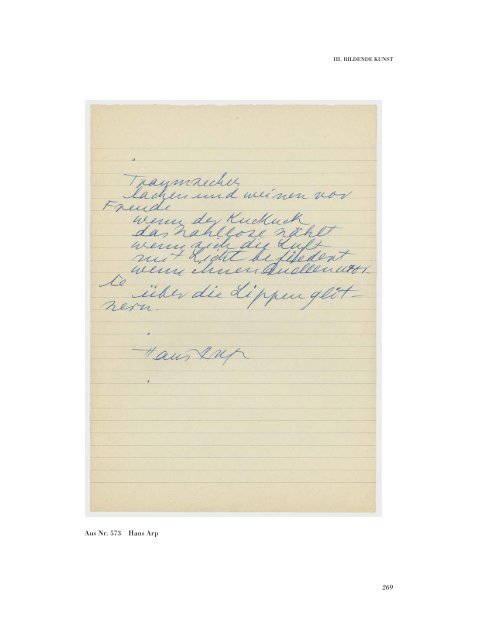 III. BILDENDE KUNST
Traumzecher
lachen und weinen vor
Freude
wenn der Kuckuck
das zahllose zählt
wenn sich die Luft
mit Licht befiedert
wenn ihnen Quellenwor-
te
über die Lippen glit-
zern.
Hans Arp
Aus Nr. 573 Hans Arp
269